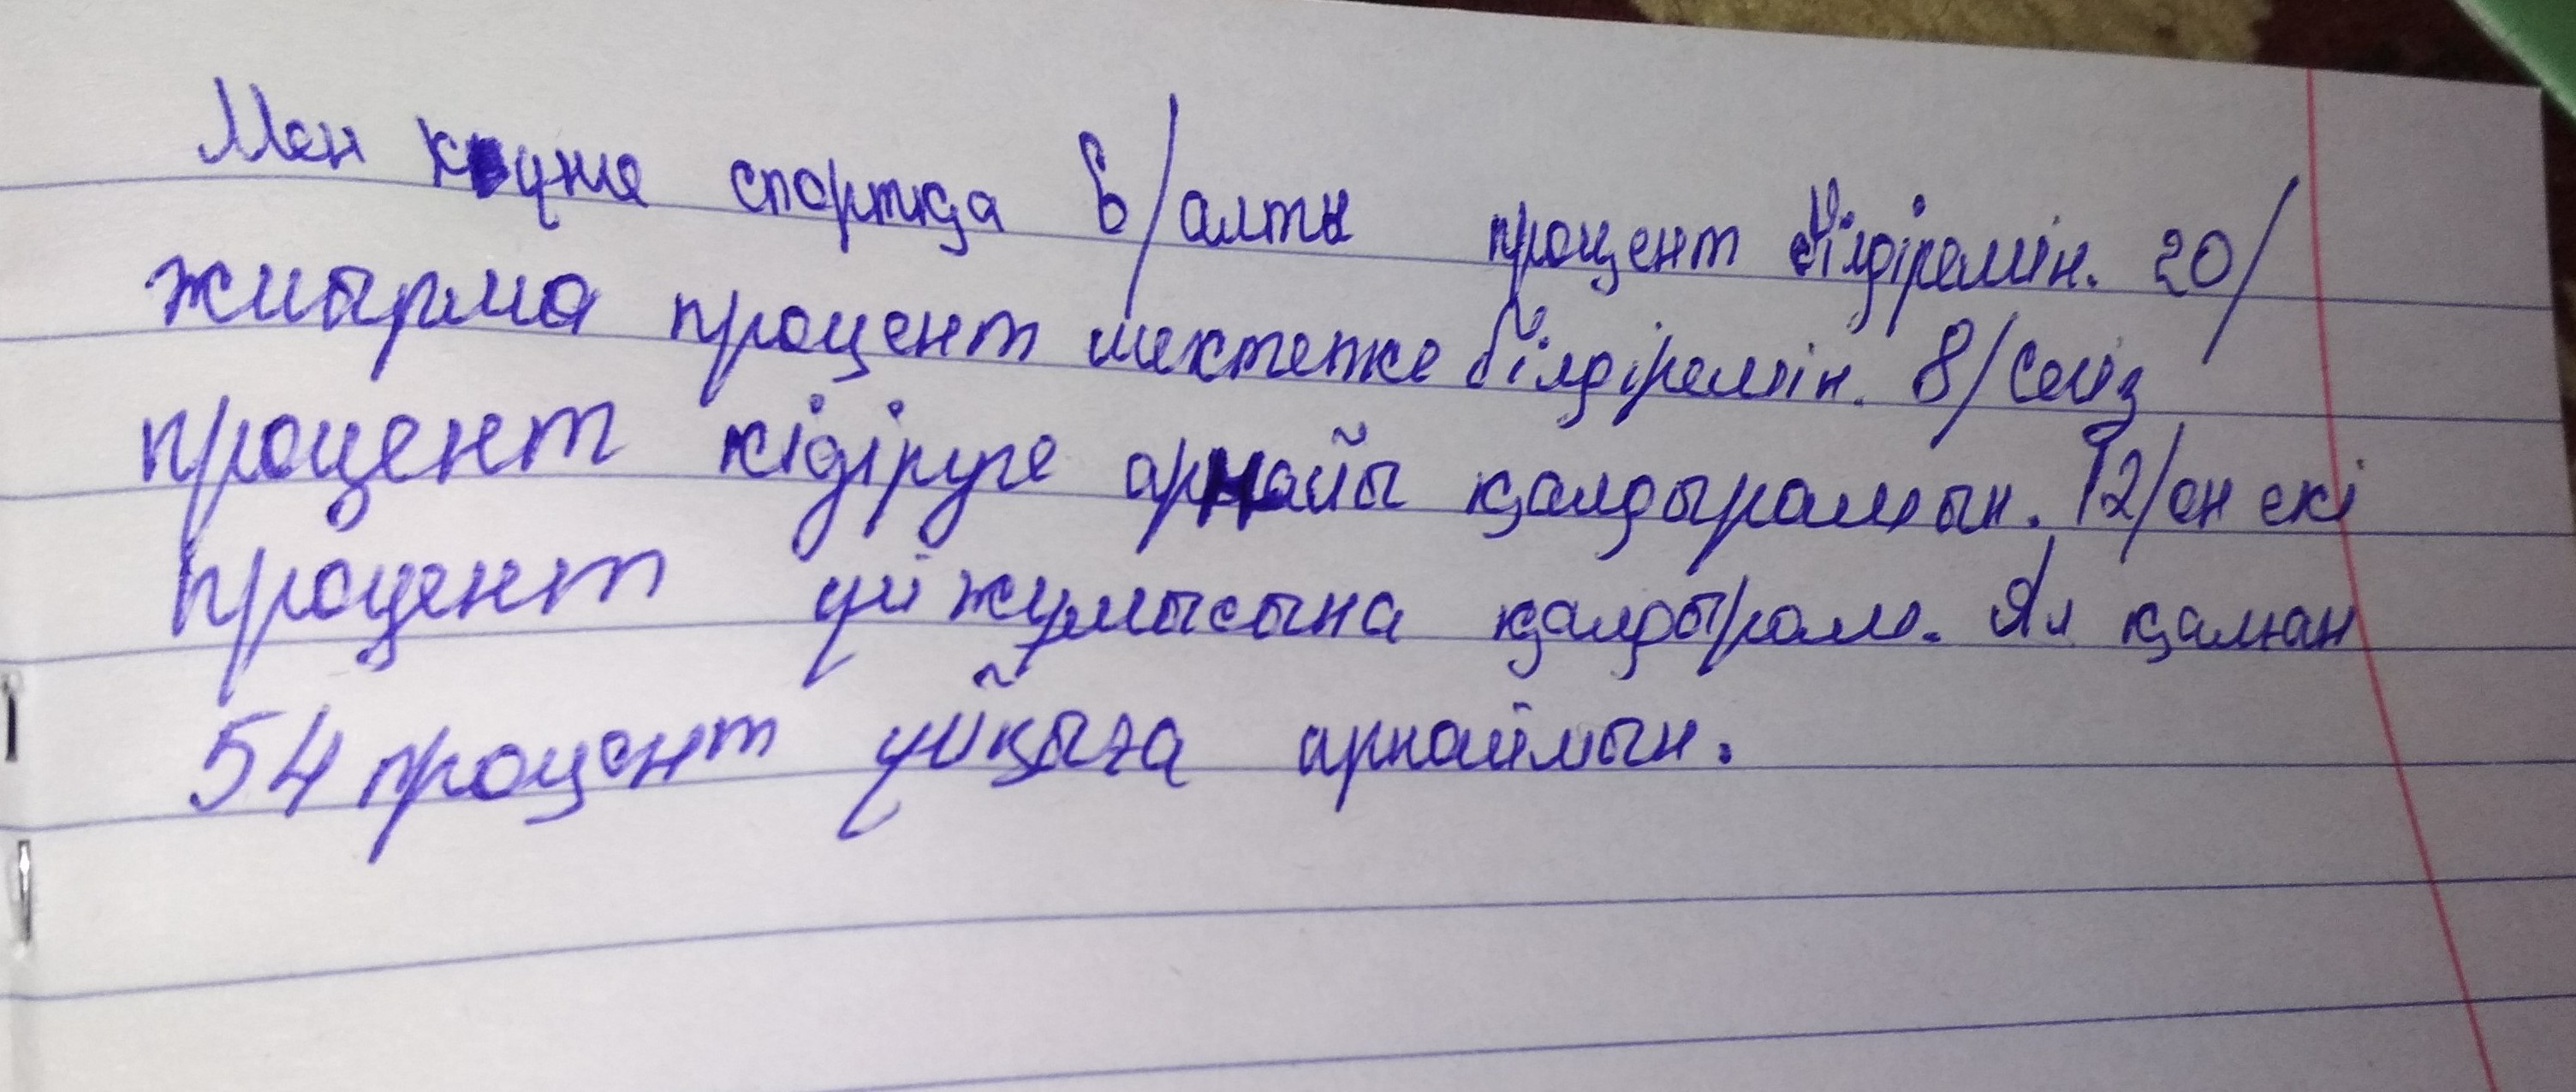 Мен күнже спортқа 6/алты процент білдіремін. 20/
жиырма процент мектепке білдіремін. 8/сегіз
процент кідіруге арнайы қалдырамын. 12/он екі
процент үй жұмысына қалдырам. Ял қалған
54 процент ұйқыға арнаймын.